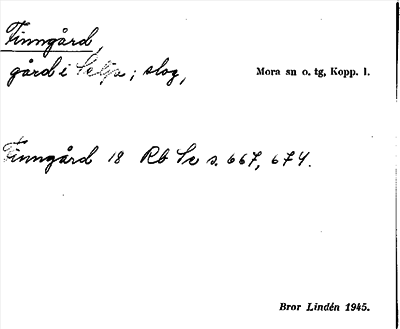 Finngård,
gård i Selja; slog, Mora sn o. tg, Kopp. l.
Finngård 18 Rb Se s. 667, 674.
Bror Lindén 1945.